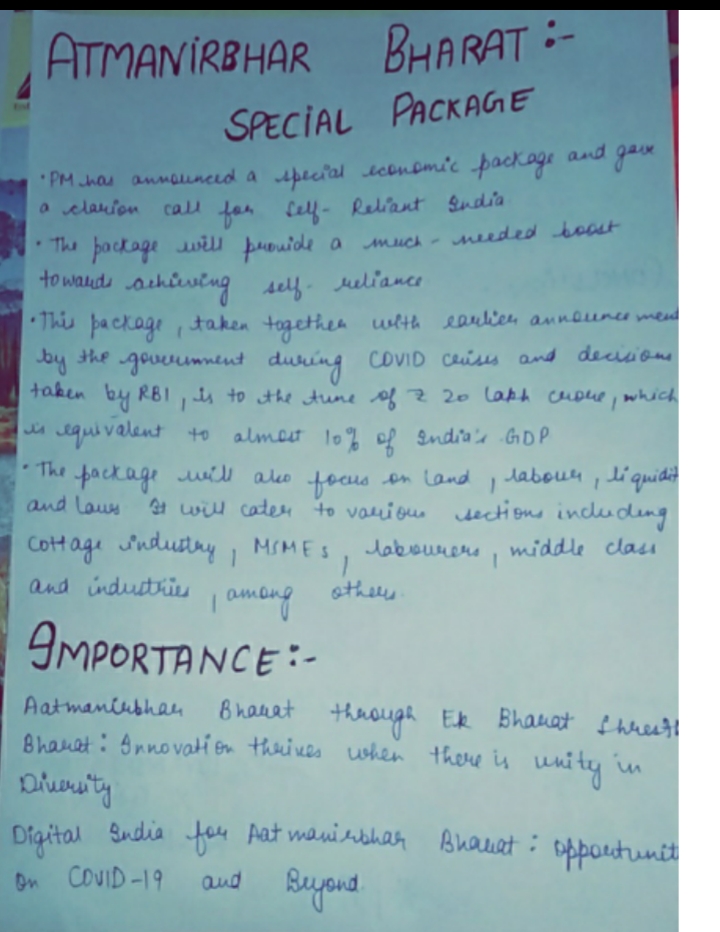 ATMANIRBHAR BHARAT :-
SPECIAL PACKAGE
• PM has announced a special economic package and gave
a clarion call for Self- Reliant India
• The package will provide a much - needed boost
towards achieving self- reliance
• This package, taken together with earlier announcement
by the government during COVID crises and decisions
taken by RBI, is to the tune of ₹ 20 lakh crore, which
is equivalent to almost 10% of India's GDP
• The package will also focus on land, labour, liquidit
and laws It will cater to various sections including
cottage industry, MSMEs, labourers, middle class
and industries, among others.
IMPORTANCE :-
Aatmanirbhar Bharat through Ek Bharat Shresth
Bharat : Innovation thrives when there is unity in
Diversity
Digital India for Aatmanirbhar Bharat : opportunit
on COVID-19 and Beyond.